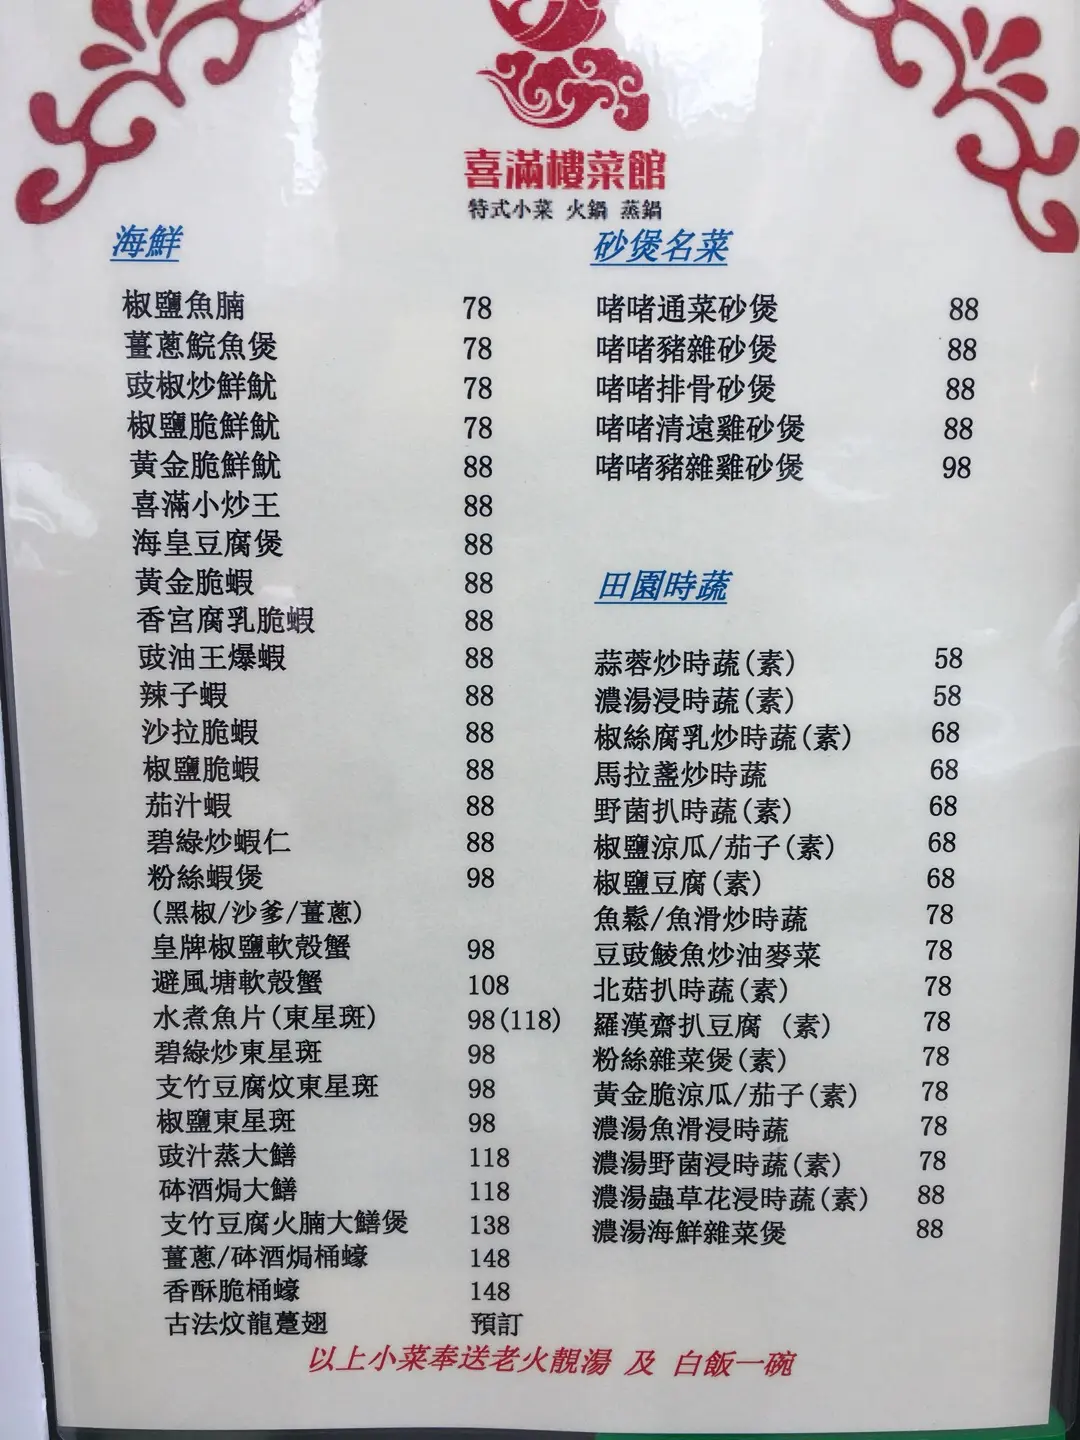 喜滿樓菜館
特式小菜 火鍋 蒸鍋
海鮮
椒鹽魚腩 78
薑蔥鯇魚煲 78
豉椒炒鮮魷 78
椒鹽脆鮮魷 78
黃金脆鮮魷 88
喜滿小炒王 88
海皇豆腐煲 88
黃金脆蝦 88
香宮腐乳脆蝦 88
豉油王爆蝦 88
辣子蝦 88
沙拉脆蝦 88
椒鹽脆蝦 88
茄汁蝦 88
碧綠炒蝦仁 88
粉絲蝦煲 98
(黑椒/沙爹/薑蔥)
皇牌椒鹽軟殼蟹 98
避風塘軟殼蟹 108
水煮魚片(東星斑) 98(118)
碧綠炒東星斑 98
支竹豆腐炆東星斑 98
椒鹽東星斑 98
豉汁蒸大鱔 118
砵酒焗大鱔 118
支竹豆腐火腩大鱔煲 138
薑蔥/砵酒焗桶蠔 148
香酥脆桶蠔 148
古法炆龍躉翅 預訂
砂煲名菜
啫啫通菜砂煲 88
啫啫豬雜砂煲 88
啫啫排骨砂煲 88
啫啫清遠雞砂煲 88
啫啫豬雜雞砂煲 98
田園時蔬
蒜蓉炒時蔬(素) 58
濃湯浸時蔬(素) 58
椒絲腐乳炒時蔬(素) 68
馬拉盞炒時蔬 68
野菌扒時蔬(素) 68
椒鹽涼瓜/茄子(素) 68
椒鹽豆腐(素) 68
魚鬆/魚滑炒時蔬 78
豆豉鯪魚炒油麥菜 78
北菇扒時蔬(素) 78
羅漢齋扒豆腐 (素) 78
粉絲雜菜煲(素) 78
黃金脆涼瓜/茄子(素) 78
濃湯魚滑浸時蔬 78
濃湯野菌浸時蔬(素) 78
濃湯蟲草花浸時蔬(素) 88
濃湯海鮮雜菜煲 88
以上小菜奉送老火靚湯 及 白飯一碗